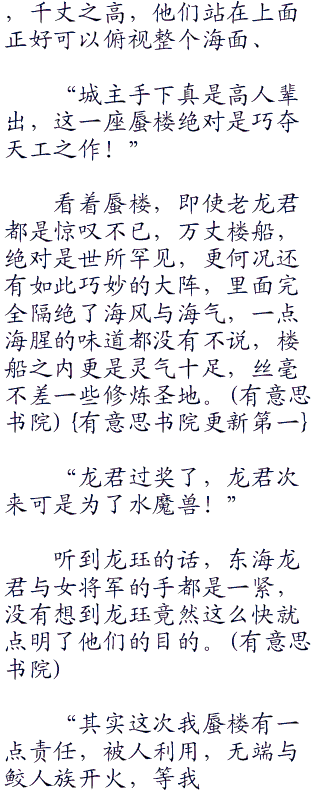 ，千丈之高，他们站在上面
正好可以俯视整个海面、
“城主手下真是高人辈
出，这一座蜃楼绝对是巧夺
天工之作！”
看着蜃楼，即使老龙君
都是惊叹不已，万丈楼船，
绝对是世所罕见，更何况还
有如此巧妙的大阵，里面完
全隔绝了海风与海气，一点
海腥的味道都没有不说，楼
船之内更是灵气十足，丝毫
不差一些修炼圣地。(有意思
书院) {有意思书院更新第一}
“龙君过奖了，龙君次
来可是为了水魔兽！”
听到龙珏的话，东海龙
君与女将军的手都是一紧，
没有想到龙珏竟然这么快就
点明了他们的目的。(有意思
书院)
“其实这次我蜃楼有一
点责任，被人利用，无端与
鲛人族开火，等我